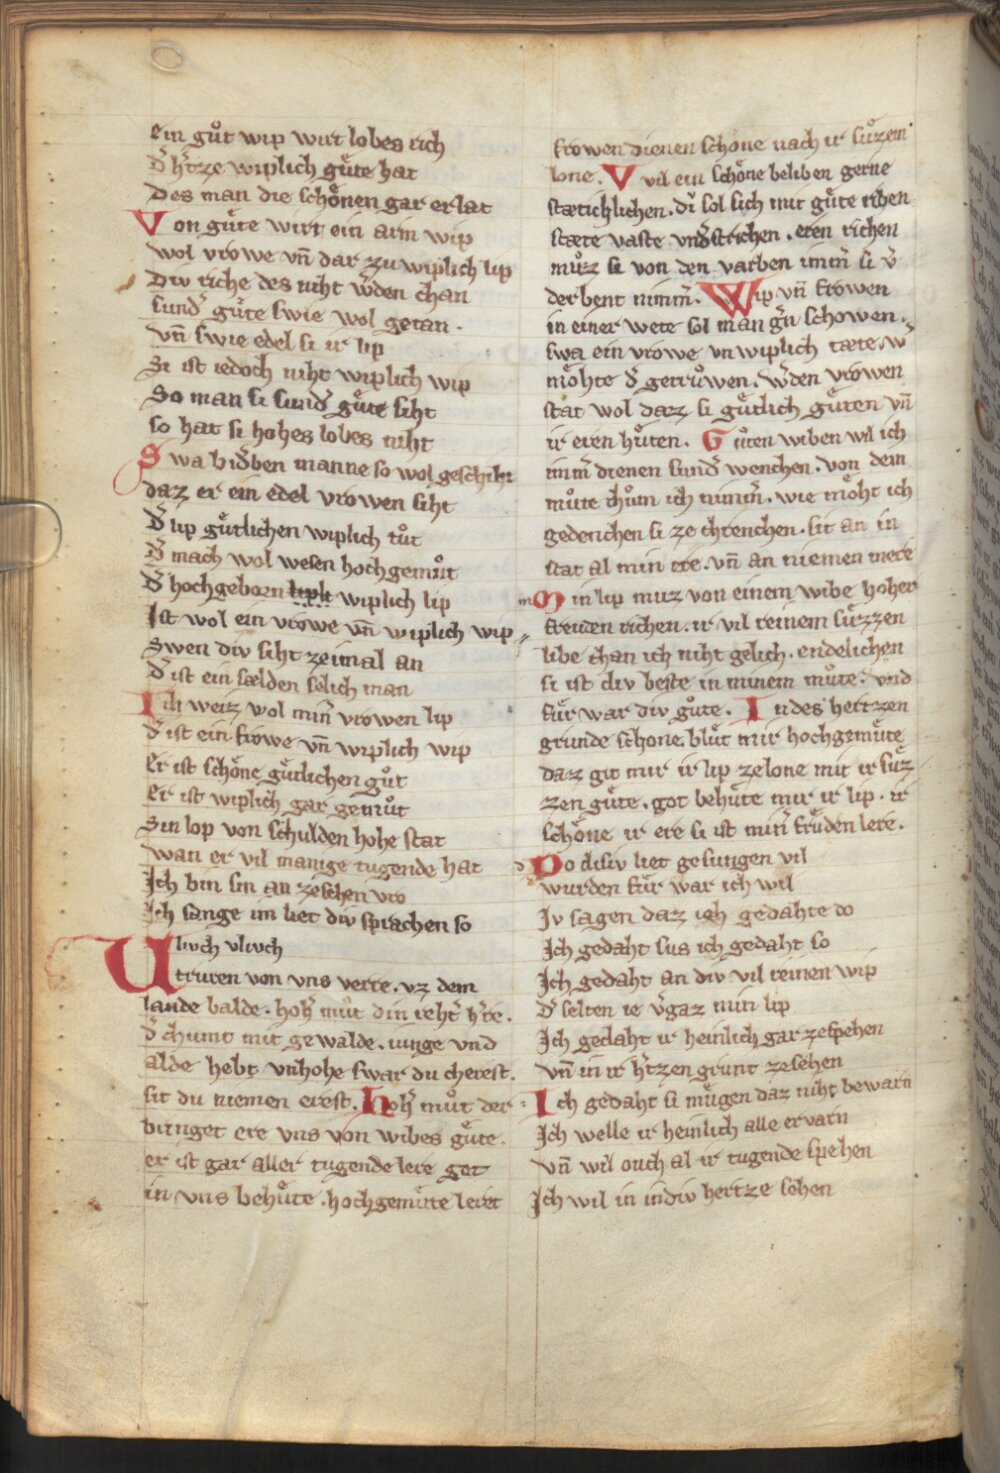 ein gůt wip wirt lobes rich
d͛ h͛tze wiplich gůte hat
Des man die schönen gar erlat
Von gůte wirt ein arm wip
wol vrowe vn̄ dar zu wiplich lip
Div riche des niht w͛den chan
sund͛ gůte swie wol getan.
vn̄ swie edel si ir lip
Si ist iedoch niht wiplich wip
So man si sund͛ gůte siht
so hat si hohes lobes niht
Swa bid͛ben manne so wol geschiht
daz er ein edel vrowen siht
d͛ lip gůtlichen wiplich tůt
d͛ mach wol wesen hochgemůt
d͛ hochgeborn wiplich lip
Ist wol ein vrowe vn̄ wiplich wip
Swen div siht zeimal an
d͛ ist ein sælden selich man
Ich weiz wol min͛ vrowen lip
d͛ ist ein frowe vn̄ wiplich wip
Er ist schöne gůtlichen gůt
Er ist wiplich gar gemůt
Sin lop von schulden hohe stat
wan er vil manige tugende hat
Ich bin sin an zesehen vro
Ich sange im liet div sprachen so
Vlivch vlivch
truren von vns verre. vz dem
lande balde. hoh͛ můt din reht͛ h͛re.
d͛ chumt mit gewalde. iunge vnd
alde hebt vnhohe swar du cherest.
sit du niemen erest. Hoh͛ můt der
bringet ere vns von wibes gůte.
er ist gar aller tugende lere got
in vns behůte. hochgemůte leret
frowen dienen schone nach ir sůzem
lone. V vil ein schöne beliben gerne
stætichlichen. di sol sich mit gůte riben
stæte vaste vnd͛ strichen. eren richen
můz si von den varben imm͛ si v͛
derbent nimm͛. Wip vn̄ frowen
in einer wete sol man g͛n schowen.
swa ein vrowe vnwiplich tæte. w͛
möhte d͛ getrůwen. w͛den vrowen
stat wol daz si gůtlich gůten vn̄
ir eren hůten. Gůten wiben wil ich
imm͛ dienen sund͛ wenchen. von dem
můte chům ich nimm͛. wie möht ich
gedenchen si ze chrenchen. sit an in
stat al min ere. vn̄ an niemen mere
Min lip muz von einem wibe hoher
freuden richen. ir vil reinem sůzzen
libe chan ich niht gelich. endelichen
si ist div beste in minem můte. vnd
für war div gůte. In des hertzen
grunde schone. blůt mir hochgemůte
daz git mir ir lip zelone mit ir sůz
zen gůte. got behůte mir ir lip. ir
schöne ir ere si ist min͛ frůden lere.
Do disiv liet gesungen vil
wurden für war ich wil
Iv sagen daz ich gedahte do
Ich gedaht sus ich gedaht so
Ich gedaht an div vil reinen wip
d͛ selten ie v͛gaz min lip
Ich gedaht ir heinlich gar zespehen
vn̄ in ir h͛tzen grunt zesehen
Ich gedaht si můgen daz niht bewarn
Ich welle ir heinlich alle ervarn
vn̄ wil ouch al ir tugende spehen
Ich wil in in div hertze sehen